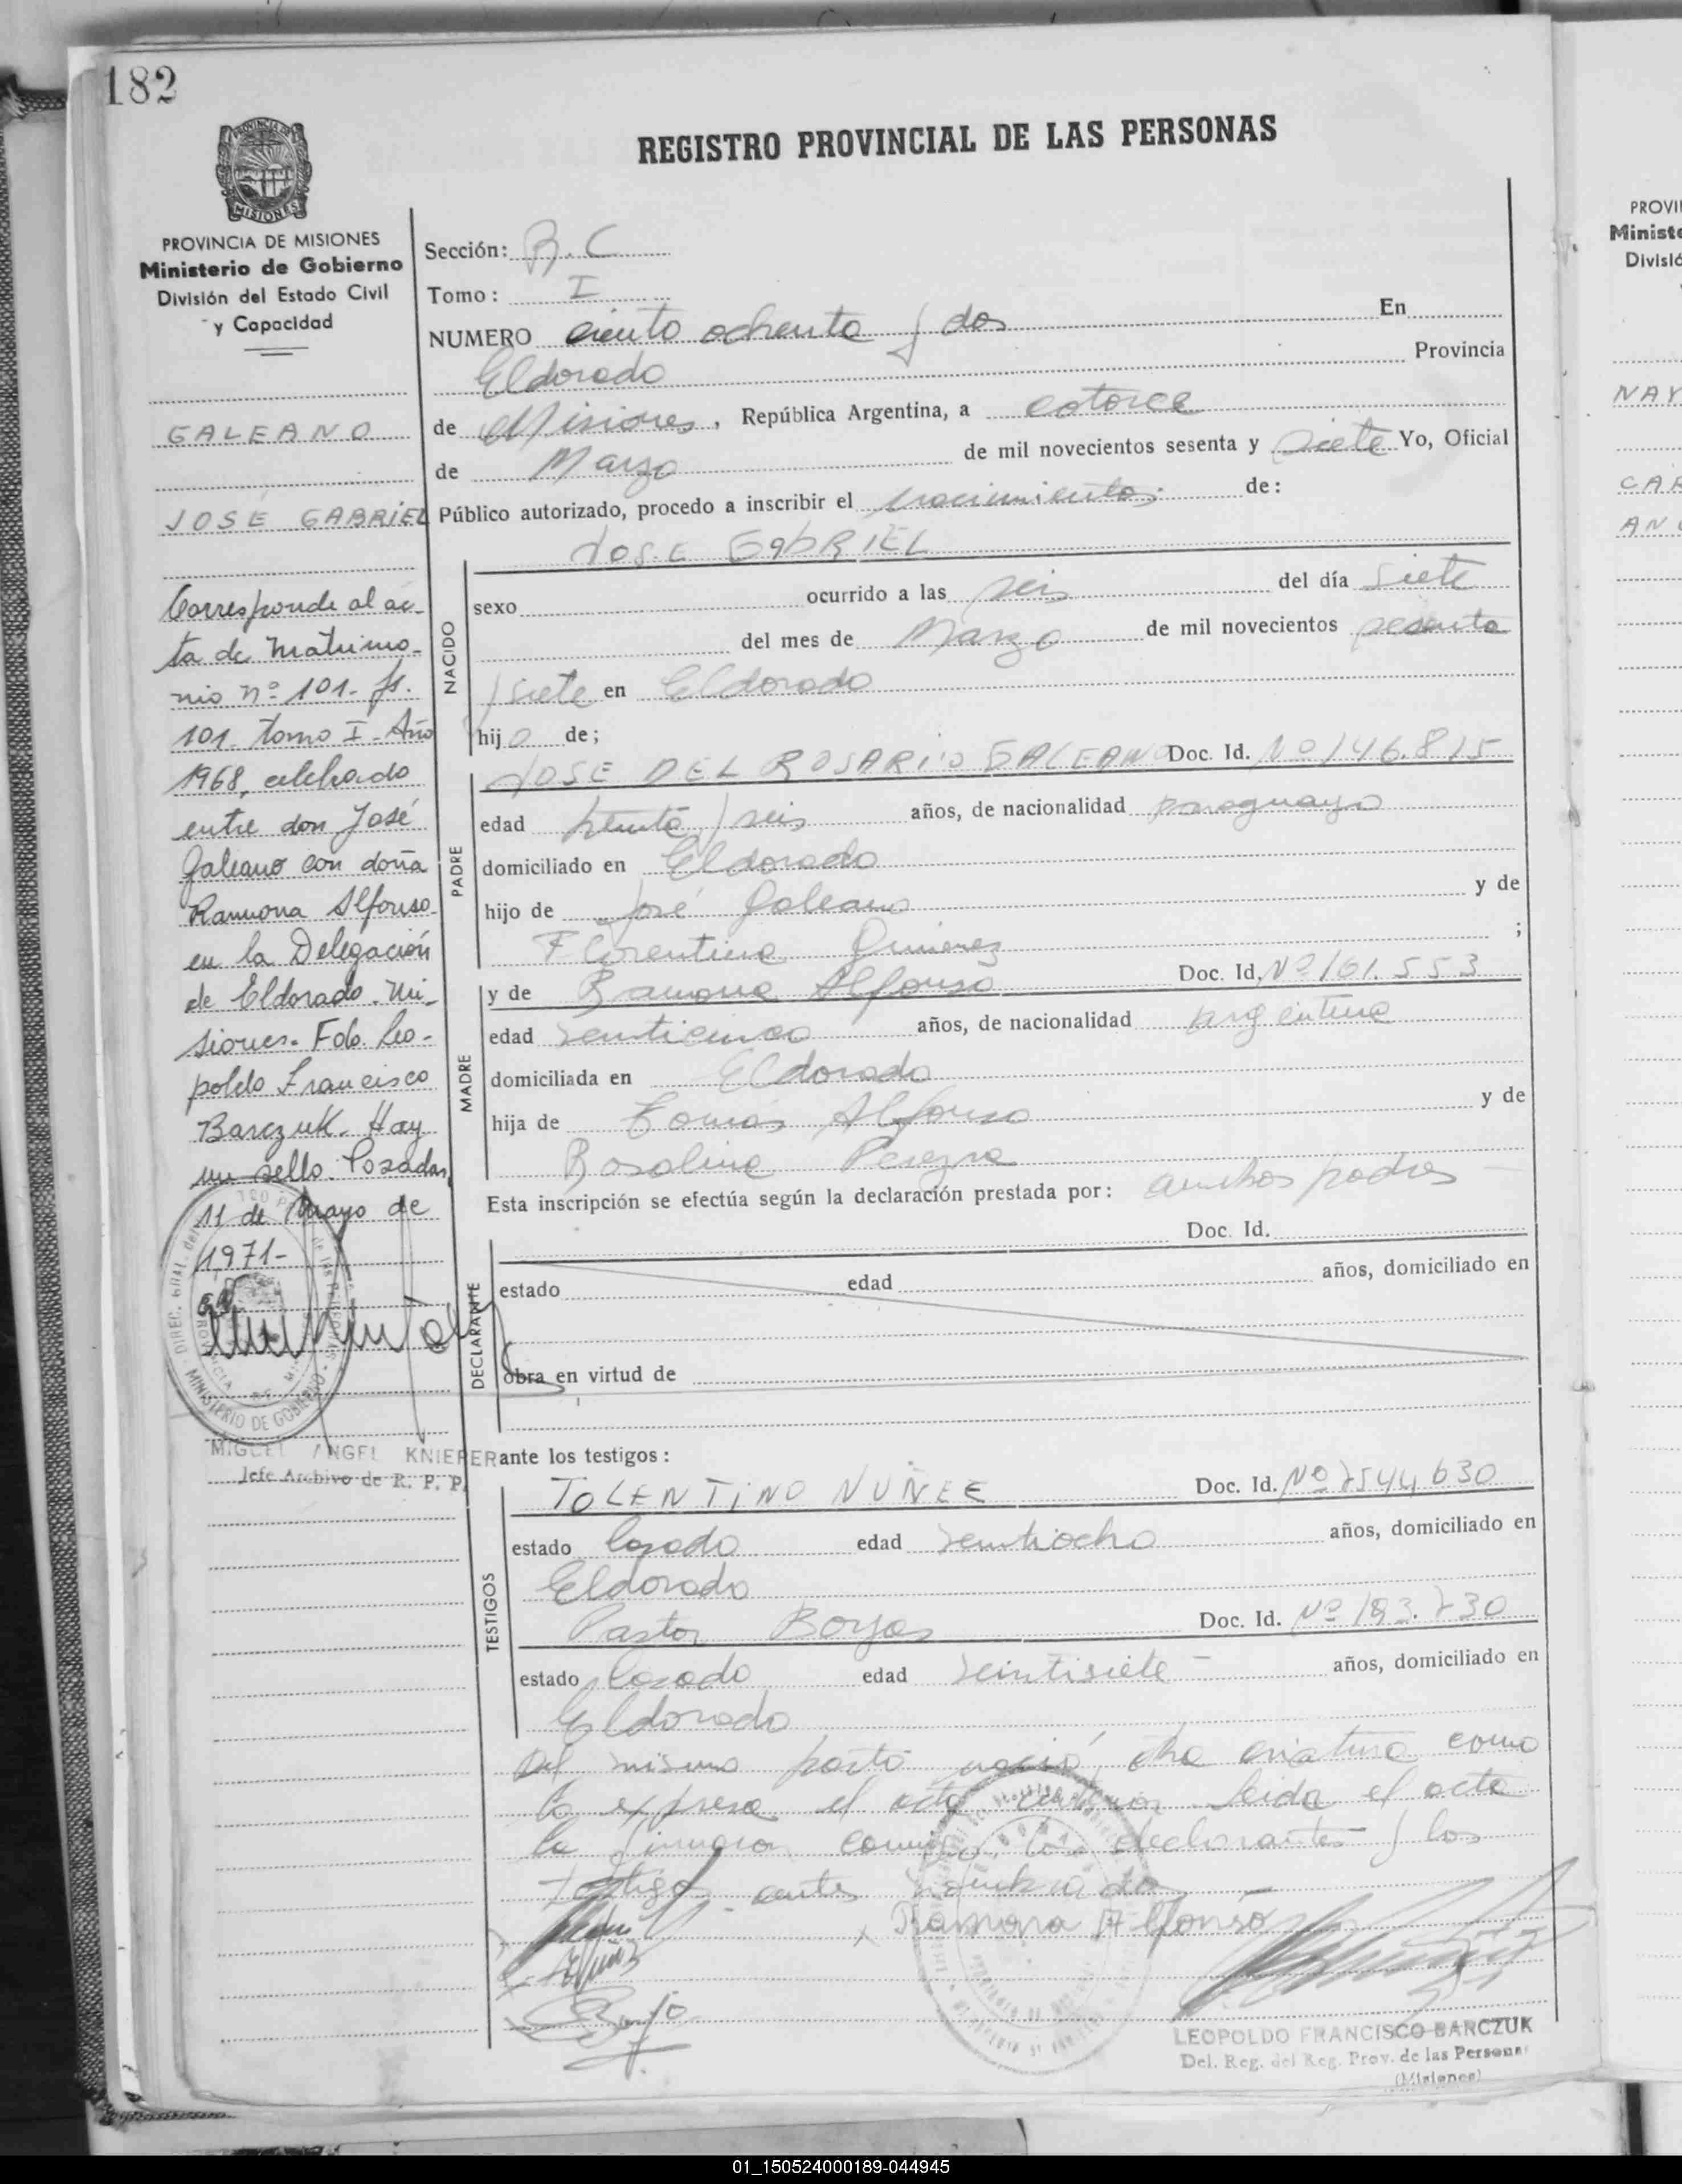 182
REGISTRO PROVINCIAL DE LAS PERSONAS
PROVINCIA DE MISIONES
MISIONES
PROVINCIA DE MISIONES
Ministerio de Gobierno
División del Estado Civil
y Capacidad
GALEANO
JOSÉ GABRIEL
Corresponde al ac-
ta de matrimo-
nio nº 101- fs.
101- tomo I- Año
1968, celebrado
entre don José
Galeano con doña
Ramona Alfonso
en la Delegación
de Eldorado. Mi-
siones. Fdo. Leo-
poldo Francisco
Barczuk. Hay
un sello. Posadas,
11 de Mayo de
1,971-
MIGUEL ANGEL KNIEPER
Jefe Archivo de R. P. P.
Sección: R. C
Tomo: I
NUMERO ciento ochenta y dos En
Eldorado Provincia
de Misiones, República Argentina, a catorce
de Marzo de mil novecientos sesenta y siete Yo, Oficial
Público autorizado, procedo a inscribir el nacimiento de:
JOSE GabRIEL
NACIDO
sexo ocurrido a las seis del día siete
del mes de Marzo de mil novecientos sesenta
y siete en Eldorado
hijo de;
PADRE
JOSE DEL ROSARIO GALEANO Doc. Id. Nº 146.815
edad treinta y seis años, de nacionalidad paraguayo
domiciliado en Eldorado
hijo de José Galeano y de
Florentina Gimenez ;
MADRE
y de Ramona Alfonso Doc. Id. Nº 161.553
edad veinticinco años, de nacionalidad argentina
domiciliada en Eldorado
hija de Tomás Alfonso y de
Rosalina
Esta inscripción se efectúa según la declaración prestada por: ambos padres
DECLARANTE
Doc. Id.
estado edad años, domiciliado en
obra en virtud de
ante los testigos:
TESTIGOS
TOLENTINO NUÑEE Doc. Id. Nº 7544630
estado Casado edad veintiocho años, domiciliado en
Eldorado
Pastor Doc. Id. Nº 183.730
estado Casado edad veintisiete años, domiciliado en
Eldorado
Del mismo parto nació otra criatura como
lo expresa el acta leida el acta
la firmaron conmigo, los declarantes y los
testigos antes nombrados
Ramona Alfonso
LEOPOLDO FRANCISCO BARCZUK
Del. Reg. del Reg. Prov. de las Personas
(Misiones)
PROVI
Ministe
Divisió
NAY
CAR
AN
01_150524000189-044945